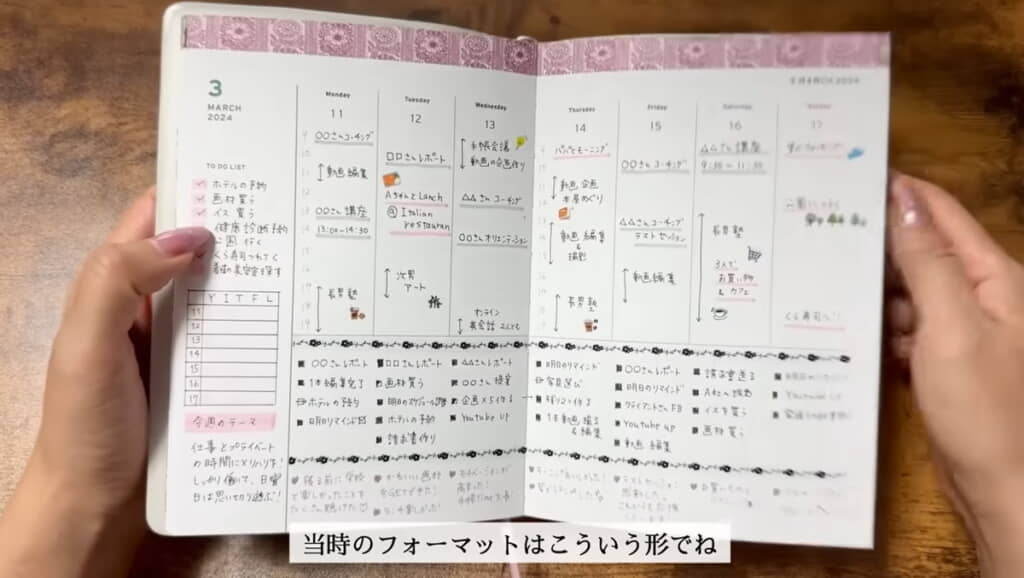 3
MARCH
2024
TO DO LIST
ホテルの予約
画材買う
イス買う
健康診断予約
公園行く
くら寿司つれてく
Y I T F L
11
12
13
14
15
16
17
今週のテーマ
仕事とプライベート
の時間にメリハリを!
しっかり働いて、日曜
日は思い切り遊ぶ!
Monday
11
〇〇さんコーチング
動画編集
〇〇さん講座
13:00~14:30
長男塾
Tuesday
12
ロロさんレポート
AちゃんとLunch
@ Italian
restaurant
次男
アート
Wednesday
13
手帳会議
動画の企画作り
△△さんコーチング
〇〇さんオリエンテーション
オンライン
英会話
Thursday
14
パパとモーニング
動画企画
本屋めぐり
動画編集
&
撮影
長男塾
Friday
15
〇〇さんコーチング
△△さんコーチング
テストセッション
動画編集
Saturday
16
△△さん講座
9:30~11:30
長男塾
3人で
お買い物
& カフェ
Sunday
17
くら寿司
〇〇さんレポート
1本編集完了
ホテルの予約
明日のリマインド
ロロさんレポート
画材買う
明日のスケジュール調整
ホテルの予約
請求書作り
△△さんレポート
〇〇さん提案
企画×5作る
Youtube UP
明日のリマインド
写真選び
1本動画撮る
& 編集
〇〇さんレポート
明日のリマインド
クライアントさんFB
Youtube UP
動画編集
請求書送る
イスを買う
画材買う
Youtube UP
寝る前に学校
で楽しかったことを
たくさん聴けた♡
かわいい画材
ランチ楽しかった!
当時のフォーマットはこういう形でね